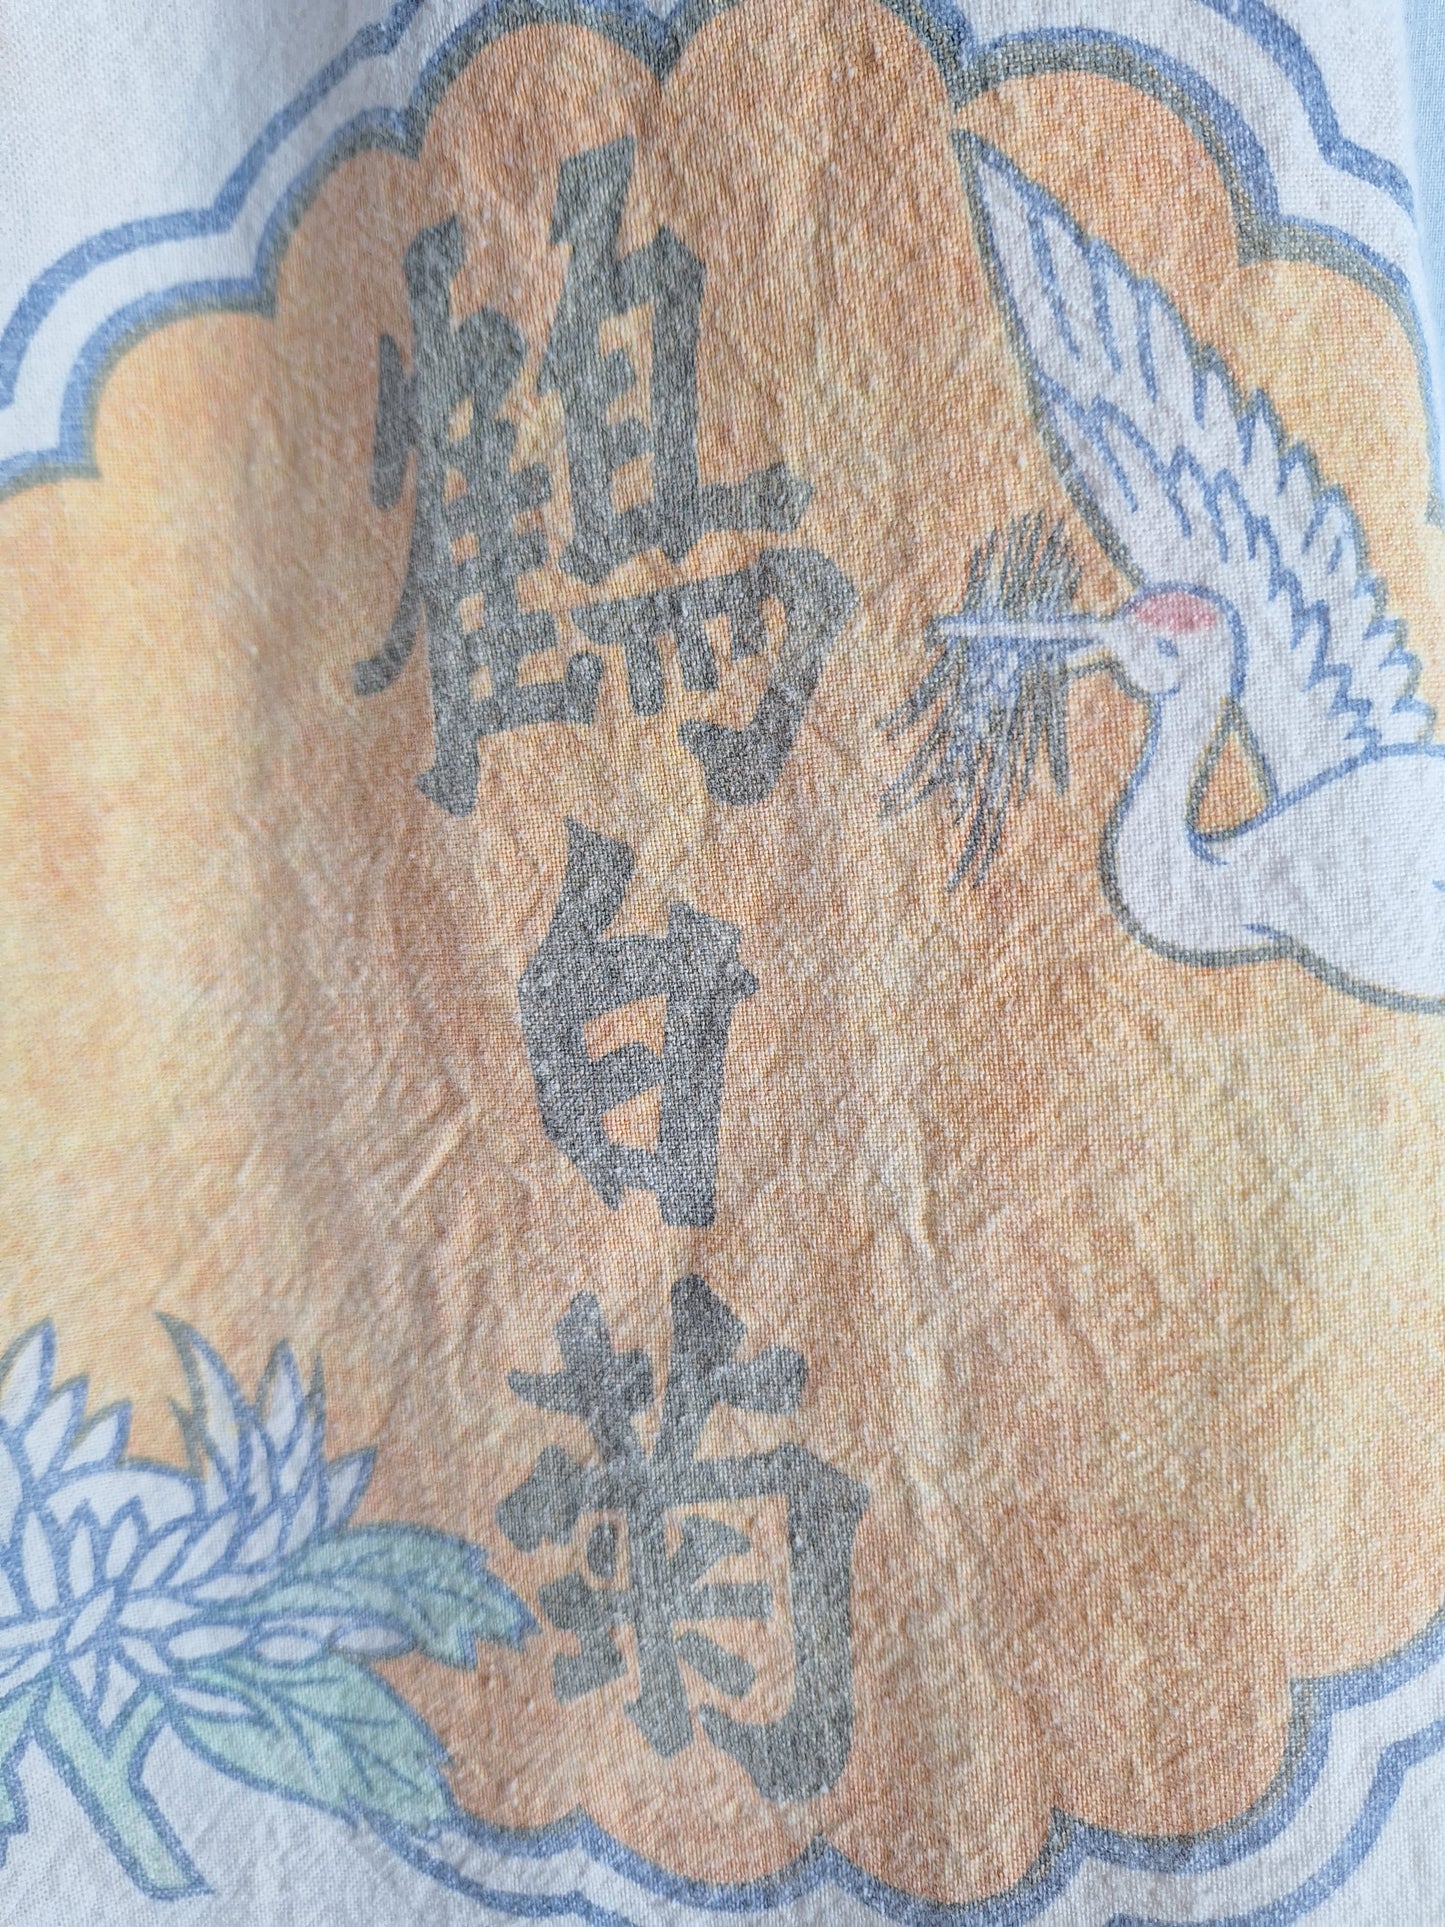 鶴白菊